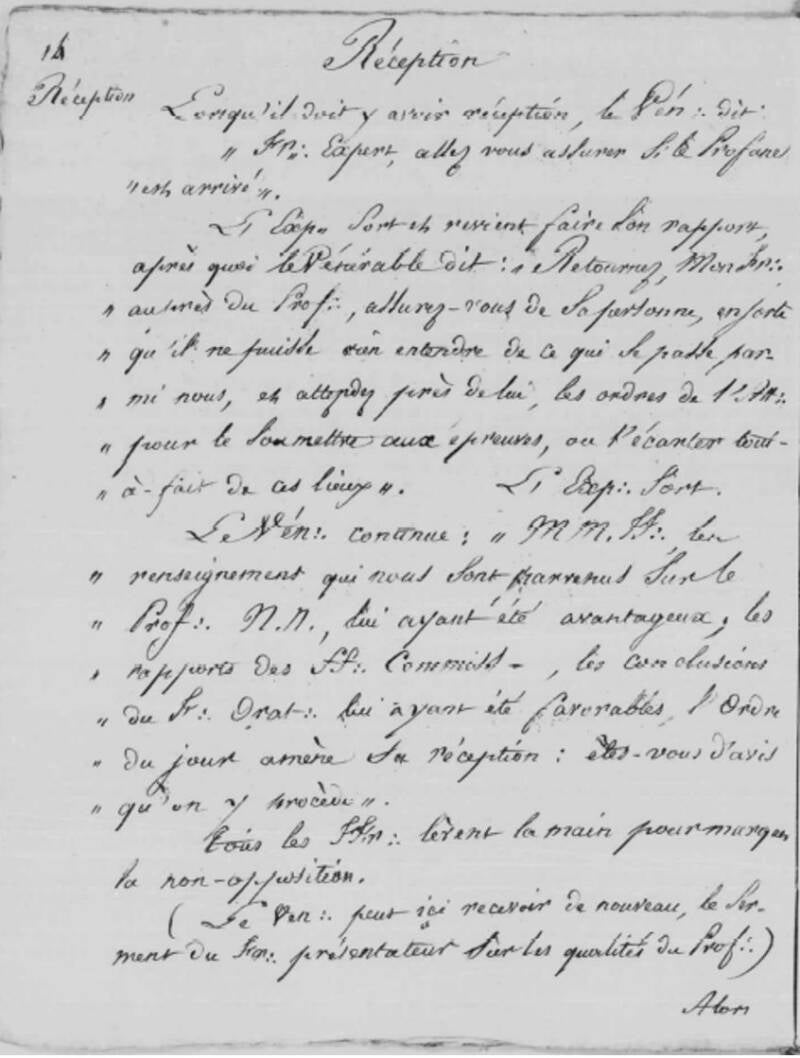 14
Réception
Réception
Lorsqu'il doit y avoir réception, le Vén∴ dit:
" Fr∴ Expert, allez vous assurer si le Profane
" est arrivé ".
L'Exp∴ sort et revient faire son rapport,
après quoi le Vénérable dit : " Retournez, Mon Fr∴
" auprès du Prof∴, assurez-vous de sa personne, en sorte
" qu'il ne puisse rien entendre de ce qui se passe par-
" mi nous, et attendez près de lui, les ordres de l'Att∴
" pour le soumettre aux épreuves, ou l'écarter tout-
" à-fait de ces lieux ". L'Exp∴ sort.
Le Vén∴ continue : " MM. FF∴ les
" renseignement qui nous sont parvenus sur le
" Prof∴ N.N., lui ayant été avantageux, les
" rapports des FF∴ Commiss-, les conclusions
" du Fr∴ Orat∴ lui ayant été favorables, l'Ordre
" du jour amène sa réception : êtes-vous d'avis
" qu'on y procède ".
Tous les FFr∴ lèvent la main pour marquer
la non-opposition.
( Le Ven∴ peut ici recevoir de nouveau, le Ser-
ment du Fr∴ présentateur sur les qualités du Prof∴ )
Alors